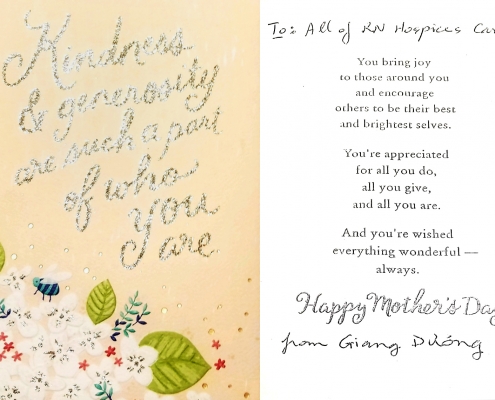 Kindness
& generosity
are such a part
of who
You
are
To: All of RN Hospices
You bring joy
to those around you
and encourage
others to be their best
and brightest selves.
You're appreciated
for all you do,
all you give,
and all you are.
And you're wished
everything wonderful —
always.
Happy Mother's Day
from Giang Dương